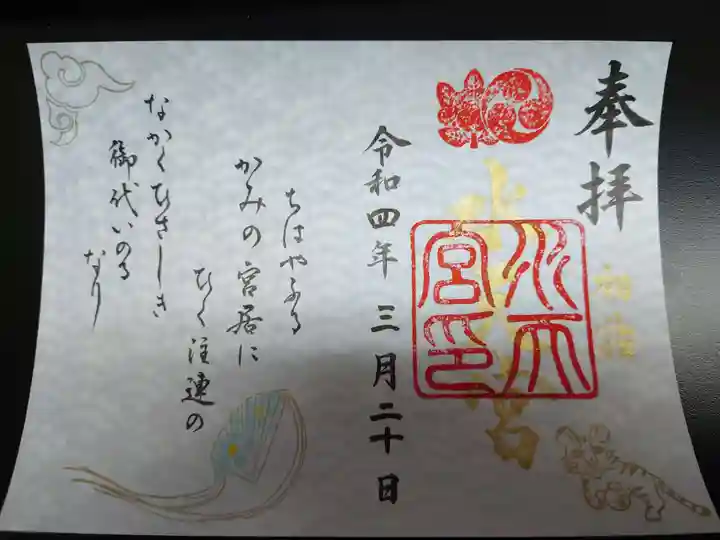 奉拝
水天宮
水天宮印
令和四年 三月二十日
ちはやふる
かみの宮居に
ひく注連の
なかくひさしき
御代いのる
なり